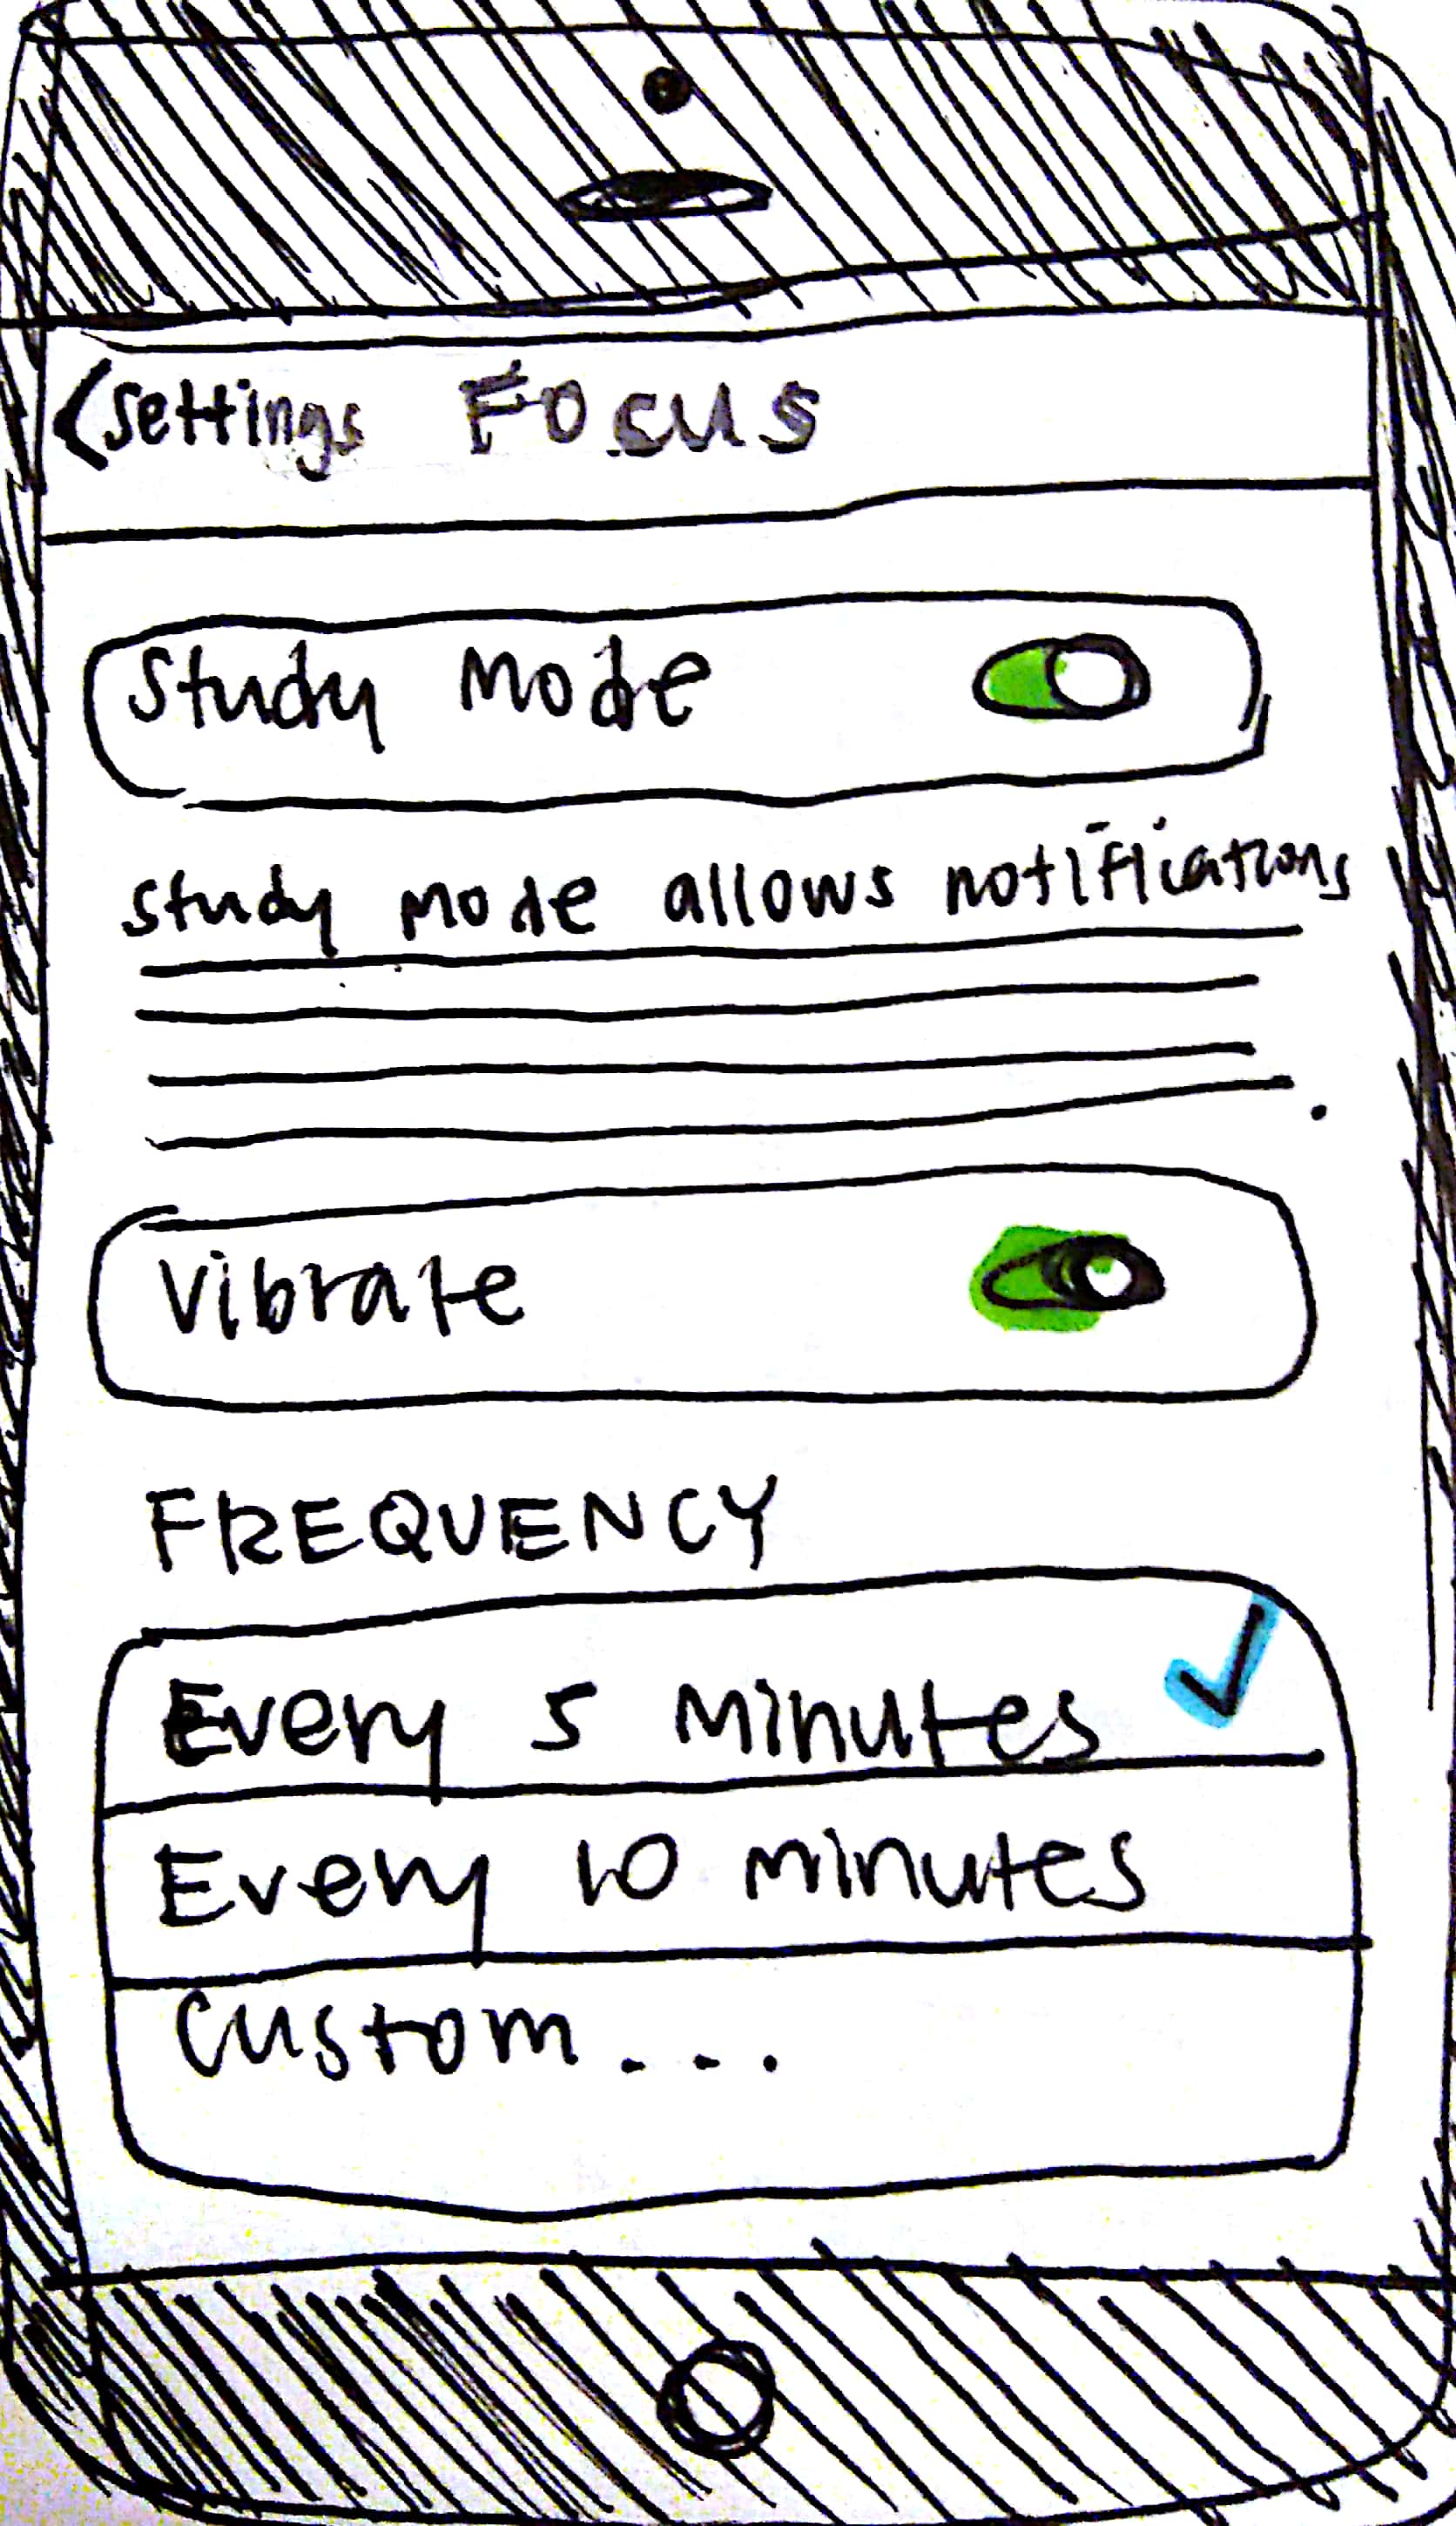 <settings Focus
Study Mode
study mode allows notifications
Vibrate
FREQUENCY
Every 5 Minutes
Every 10 minutes
Custom...